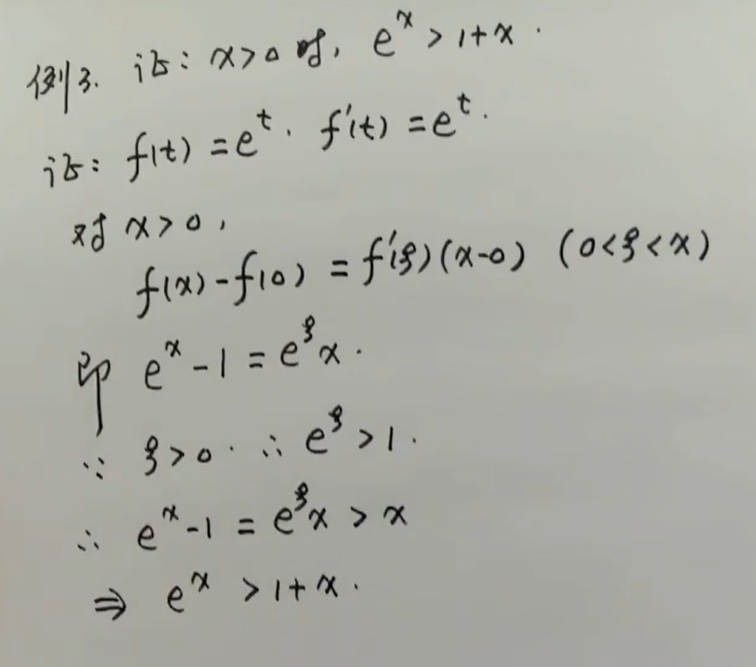 例3. 证: x>0时, e^x > 1+x.
证: f(t) = e^t. f'(t) = e^t.
对 x>0,
f(x)-f(0) = f'(ξ)(x-0) (0<ξ<x)
即 e^x -1 = e^ξ x.
∵ ξ>0. ∴ e^ξ >1.
∴ e^x -1 = e^ξ x > x
⇒ e^x > 1+x.